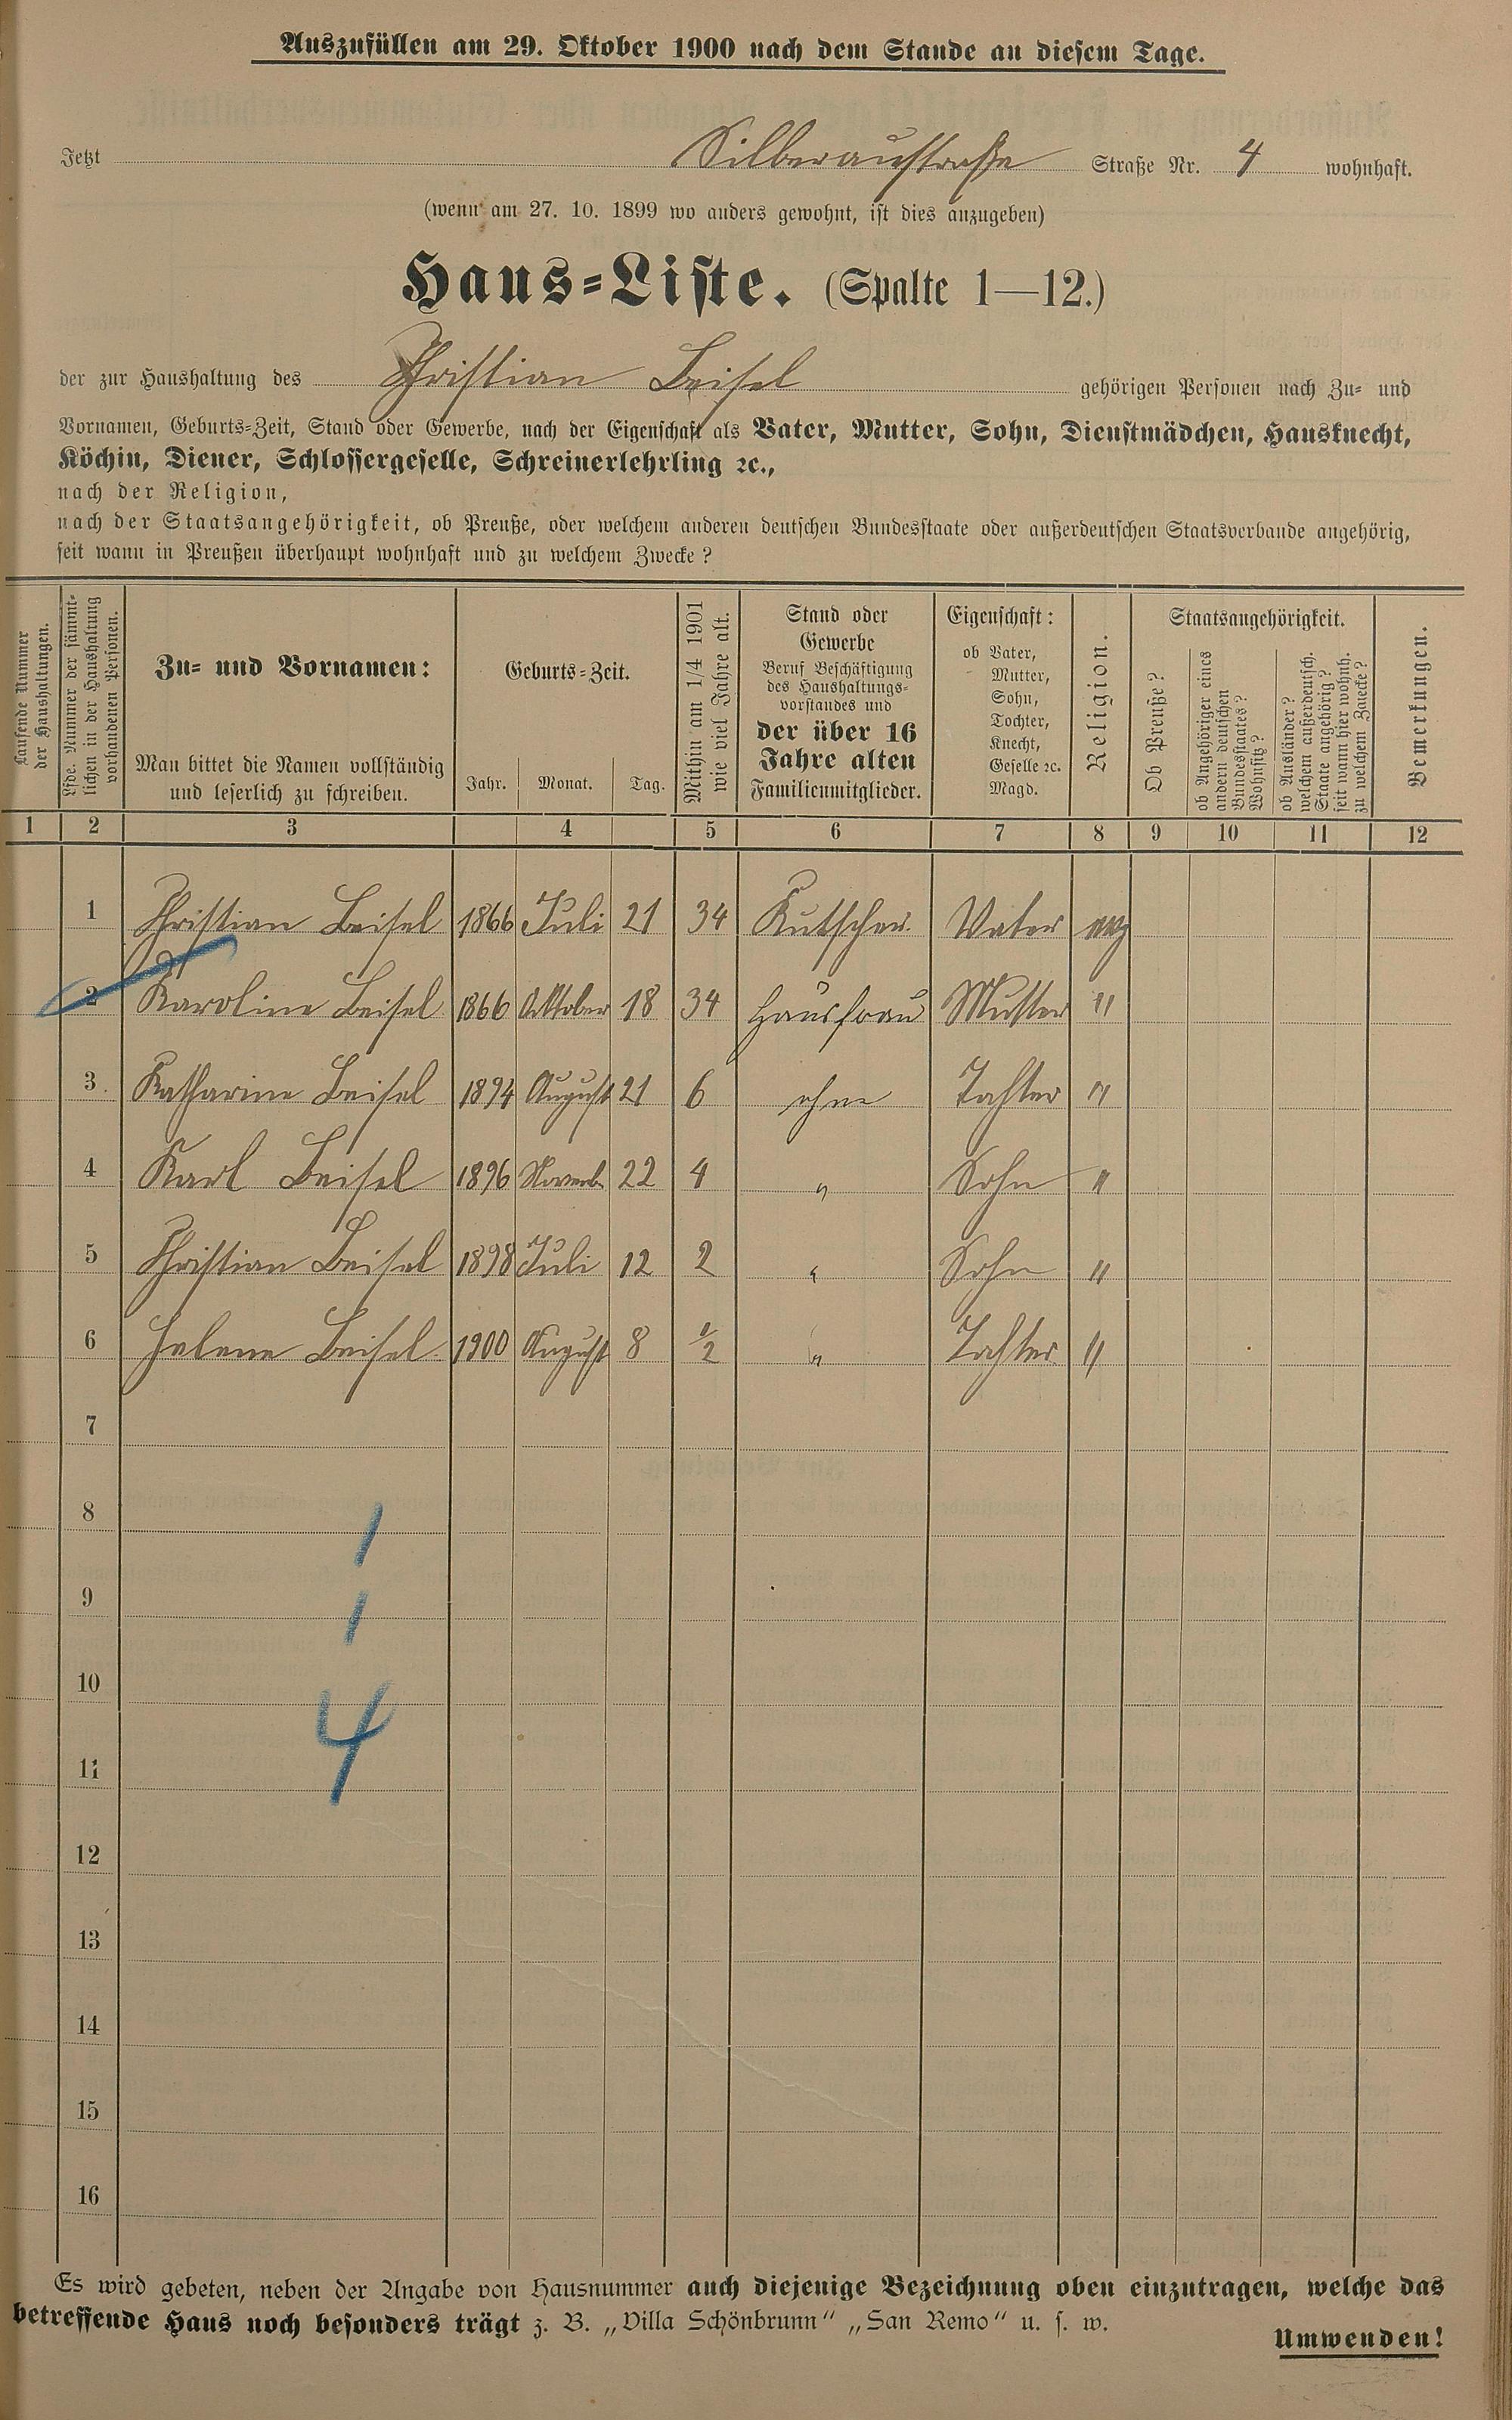 Auszufüllen am 29. Oktober 1900 nach dem Stande an diesem Tage.
Jetzt Silberaustraße Straße Nr. 4 wohnhaft.
(wenn am 27. 10. 1899 wo anders gewohnt, ist dies anzugeben)
Haus=Liste. (Spalte 1—12.)
der zur Haushaltung des Christian Beisel gehörigen Personen nach Zu= und
Vornamen, Geburts=Zeit, Stand oder Gewerbe, nach der Eigenschaft als Vater, Mutter, Sohn, Dienstmädchen, Hausknecht,
Köchin, Diener, Schlossergeselle, Schreinerlehrling ꝛc.,
nach der Religion,
nach der Staatsangehörigkeit, ob Preuße, oder welchem anderen deutschen Bundesstaate oder außerdeutschen Staatsverbande angehörig,
seit wann in Preußen überhaupt wohnhaft und zu welchem Zwecke?
Laufende Nummer
der Haushaltungen.
Lfde. Nummer der sämmt=
lichen in der Haushaltung
vorhandenen Personen.
Zu= und Vornamen:
Man bittet die Namen vollständig
und leserlich zu schreiben.
Geburts=Zeit.
Jahr. Monat. Tag.
Mithin am 1/4 1901
wie viel Jahre alt.
Stand oder
Gewerbe
Beruf Beschäftigung
des Haushaltungs=
vorstandes und
der über 16
Jahre alten
Familienmitglieder.
Eigenschaft:
ob Vater,
Mutter,
Sohn,
Tochter,
Knecht,
Geselle ꝛc.
Magd.
Religion.
Staatsangehörigkeit.
Ob Preuße?
ob Angehöriger eines
andern deutschen
Bundesstaates?
Wohnsitz?
ob Ausländer?
welchem außerdeutsch.
Staate angehörig?
seit wann hier wohnh.
zu welchem Zwecke?
Bemerkungen.
1 2 3 4 5 6 7 8 9 10 11 12
1 Christian Beisel 1866 Juli 21 34 Kutscher. Vater evg
2 Karoline Beisel 1866 Oktober 18 34 Hausfrau Mutter "
3 Katharine Beisel 1894 August 21 6 ohne Tochter "
4 Karl Beisel 1896 Novemb. 22 4 " Sohn "
5 Christian Beisel 1898 Juli 12 2 " Sohn "
6 Helene Beisel 1900 August 8 1/2 " Tochter "
7
8 1
9 1
10
11 4
12
13
14
15
16
Es wird gebeten, neben der Angabe von Hausnummer auch diejenige Bezeichnung oben einzutragen, welche das
betreffende Haus noch besonders trägt z. B. „Villa Schönbrunn“ „San Remo“ u. s. w.
Umwenden!